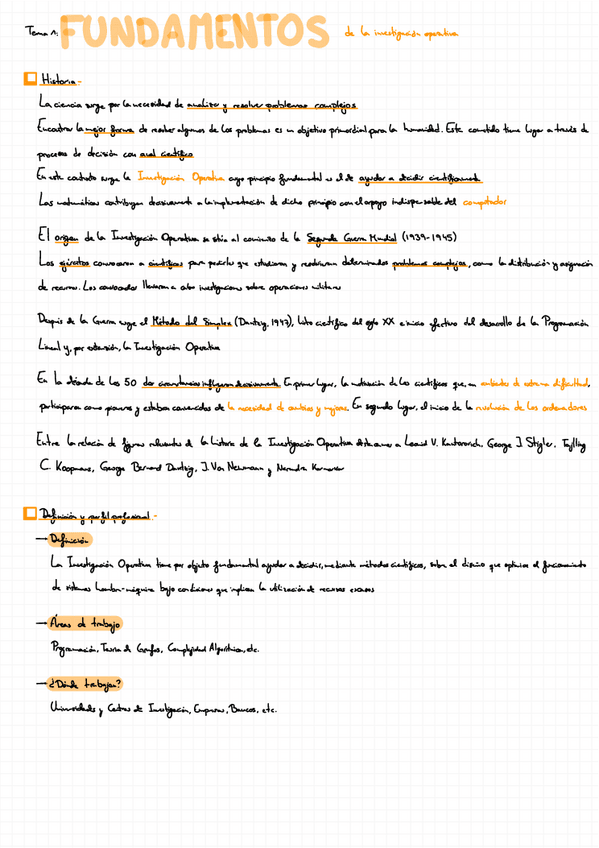 Tema 1: FUNDAMENTOS de la investigación operativa
Historia -
La ciencia surge por la necesidad de analizar y resolver problemas complejos
Encontrar la mejor forma de resolver algunos de los problemas es un objetivo primordial para la humanidad. Este cometido tiene lugar a través de
procesos de decisión con aval científico
En este contexto surge la Investigación Operativa cuyo principio fundamental es el de ayudar a decidir científicamente.
Las matemáticas contribuyen decisivamente a la implementación de dicho principio con el apoyo indispensable del computador
El origen de la Investigación Operativa se sitúa al comienzo de la Segunda Guerra Mundial (1939-1945)
Los ejércitos convocaron a científicos para pedirles que estudiaran y resolvieran determinados problemas complejos, como la distribución y asignación
de recursos. Los convocados llevaron a cabo investigaciones sobre operaciones militares
Después de la Guerra surge el Método del Simplex (Dantzig, 1947), hito científico del siglo XX e inicio efectivo del desarrollo de la Programación
Lineal y, por extensión, la Investigación Operativa
En la década de los 50 dos circunstancias influyen decisivamente. En primer lugar, la motivación de los científicos que, en ambientes de extrema dificultad,
participaron como pioneros y estaban convencidos de la necesidad de cambios y mejoras. En segundo lugar, el inicio de la revolución de los ordenadores
Entre la relación de figuras relevantes de la historia de la Investigación Operativa destacamos a Leonid V. Kantorovich, George J Stigler, Tjalling
C. Koopmans, George Bernard Dantzig, J. Von Neumann y Narendra Karmarkar
Definición y perfil profesional -
→ Definición
La Investigación Operativa tiene por objeto fundamental ayudar a decidir, mediante métodos científicos, sobre el diseño que optimice el funcionamiento
de sistemas hombre-máquina bajo condiciones que implican la utilización de recursos escasos
→ Áreas de trabajo
Programación, Teoría de Grafos, Complejidad Algorítmica, etc.
→ ¿Dónde trabajan?
Universidades y Centros de Investigación, Empresas, Bancos, etc.